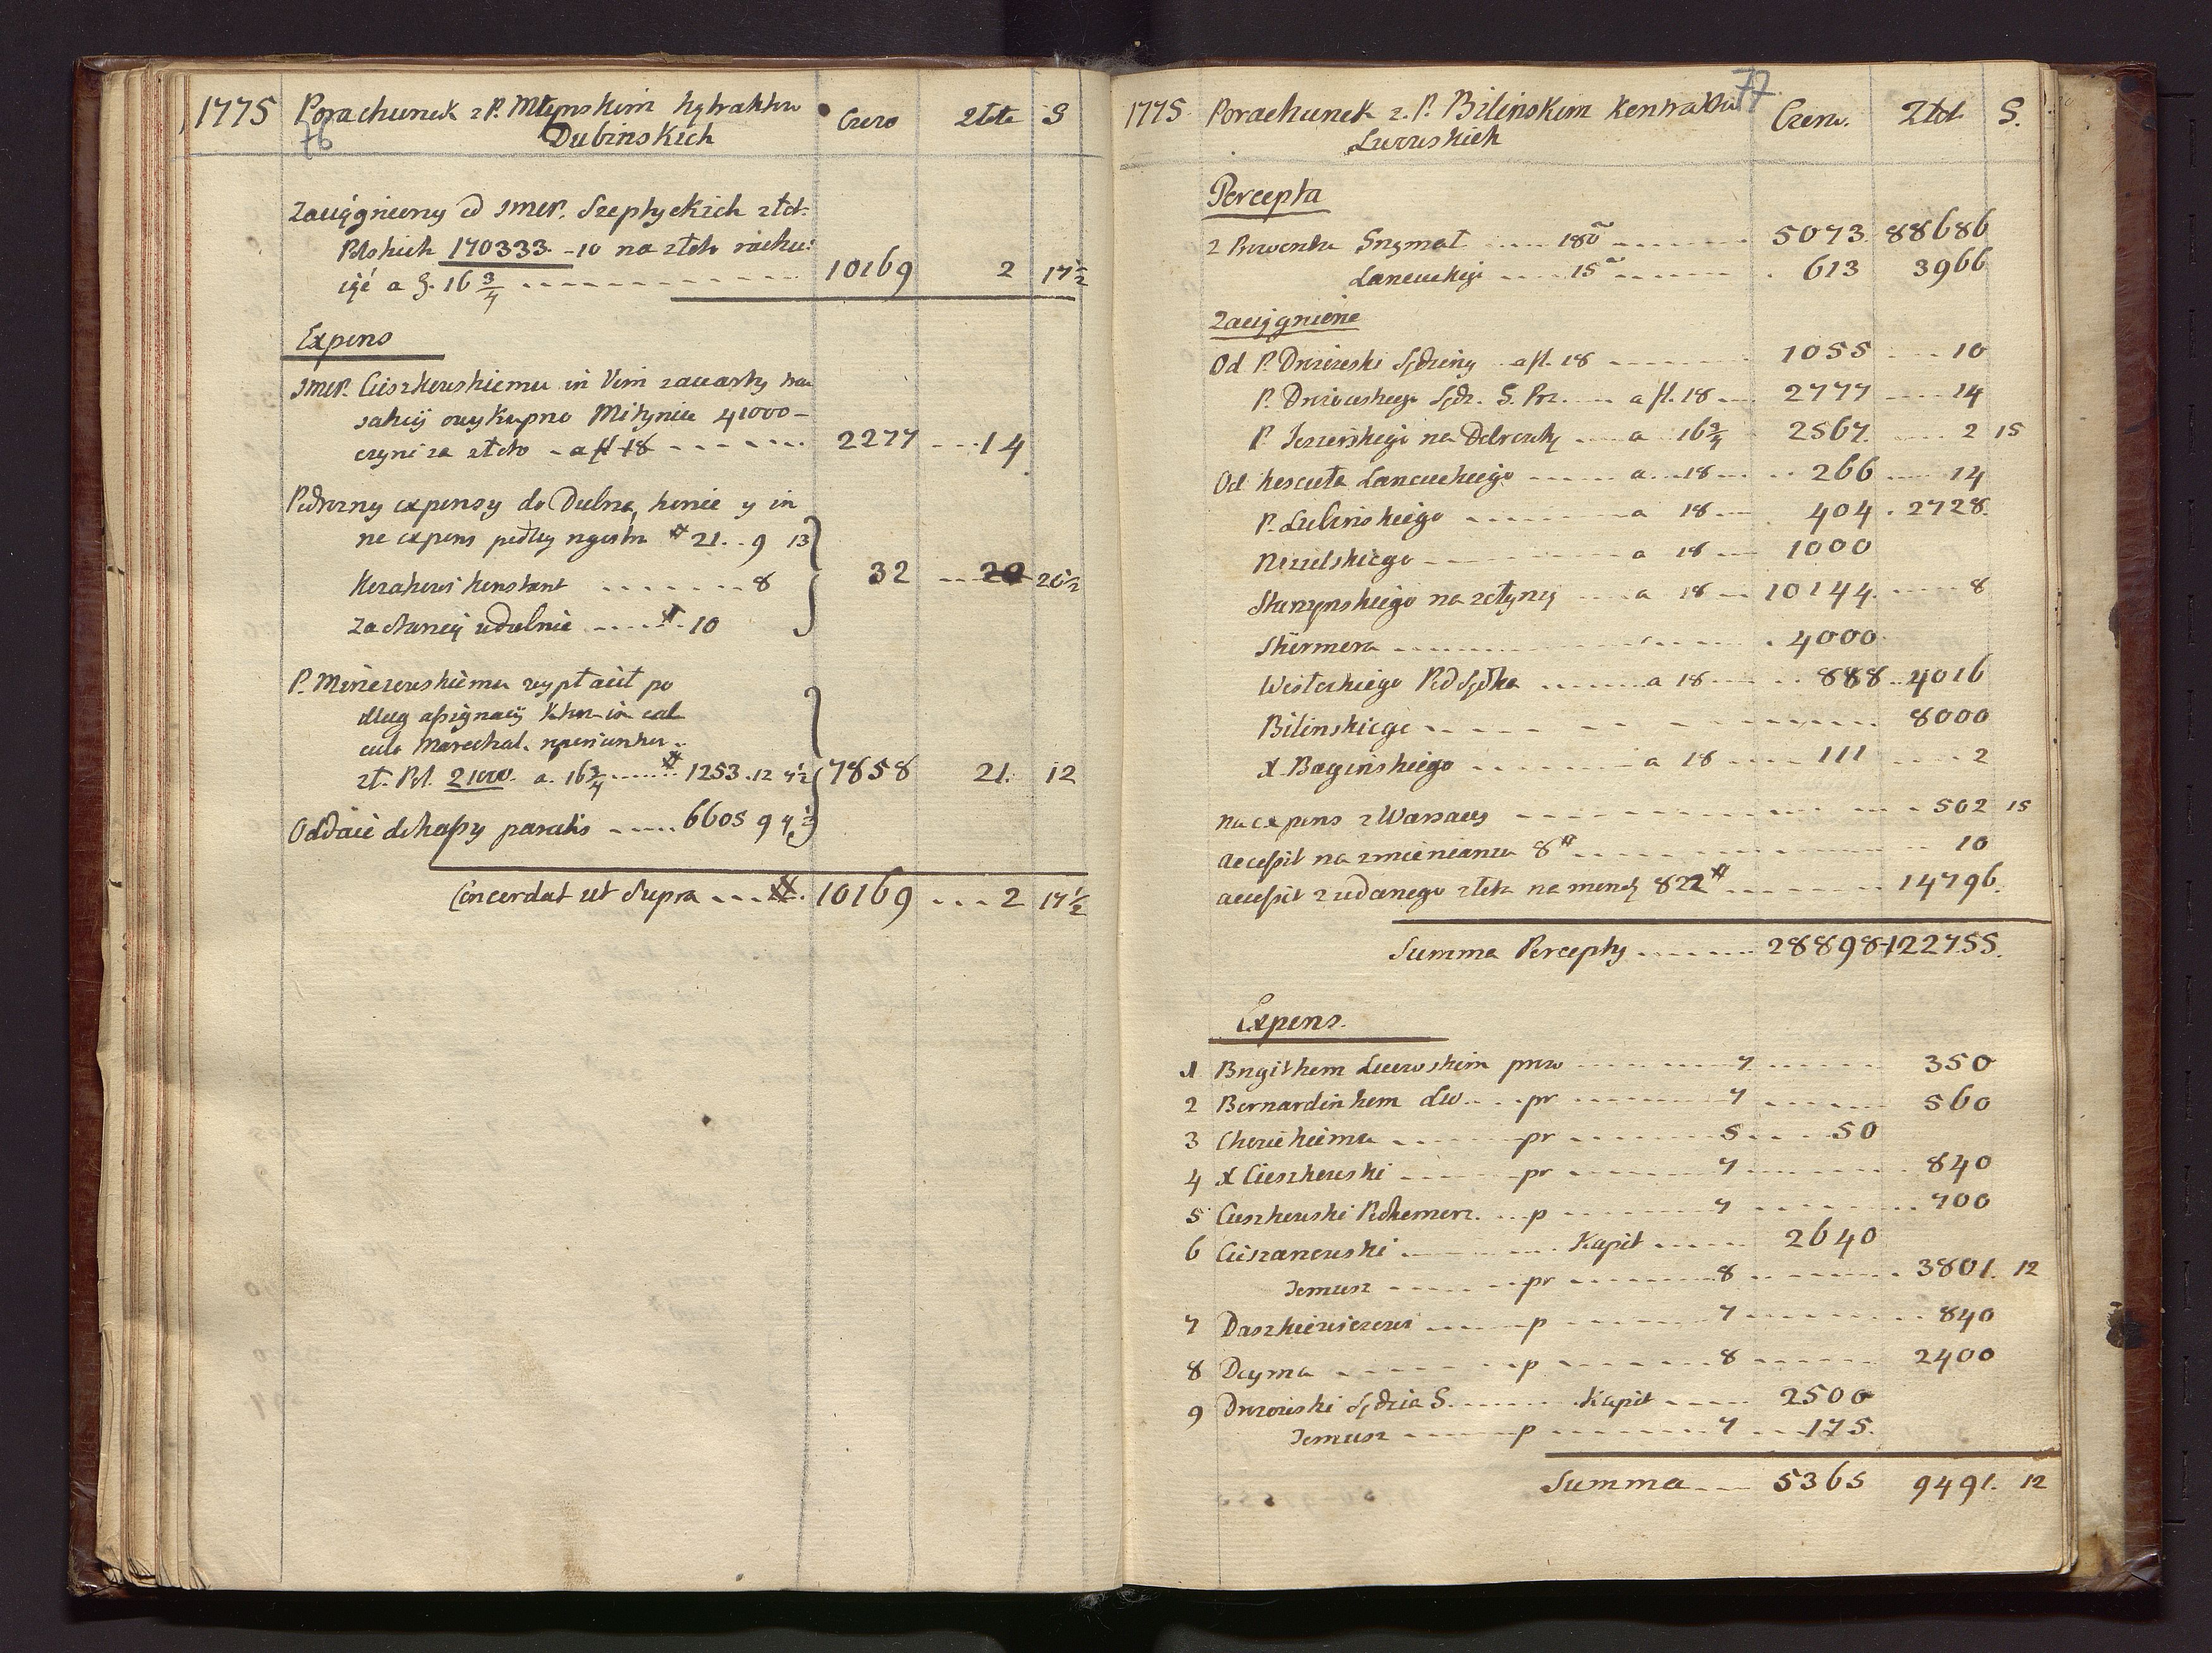 1775 Porachunek z P. Młynskim kątraktu Czero Złote S
76 Dubinskich
Zaciągnieny od JMCP. Szeptyckich złot.
Polskich 170333. -10 na złoto rachu:
iąć a fl. 16 3/4 10169 2 17 1/2
Expens
JMCP. Cieszkowskiemu in Vim zawarty tran
sakcij owykupno Mitynia 41000 -
czyni za złoto - a fl 18 2277 14
Podrozny expensy do Dubna, konie y in
ne expens podług regestru # 21. 9 13
Kozakowi konstant 8 32 20 20 1/2
Za stancij wdubnie # 10
P. Miniezewskiemu wypłacił po
dług assignacij
culo Marechal.
zł. Pol. 21000. a. 16 3/4 # 1253. 12 4 1/2 7858 21. 12
Oddaie dokassy paratis 6605 9 7 1/2
Concordat ut Supra # 10169 2 17 1/2
1775. Porachunek z. P. Bilinskim kontraktu 77 Czerw. Złot. S.
Lwowskich
Percepta
z Prowentu Snymat 180 5073. 88686
Lancuckiej 15 613 3966
Zaciągnione
Od P. Drzewieski Sędziny a fl. 18 1055 10
P. Drzewieckiego Sędz. S. Prz. a fl. 18 2777 14
P. Jezierskiego na Dobrowlę a 16 3/4 2567. 2 15
Od kosciuła Lancuckiego a 18 266 14
P. Lubinskiego a 18 404. 2728.
a 18 1000
na zołynię a 18 10144. 8
Sthirmera 4000.
Wisłockiego Podsędka a 18 888. 4016
Bilinskiego 8000
X. Baginskiego a 18 111 2
na expens z Warszawy 502 15
accessit na zmienianiu 8# 10
accessit z wdanego złota na monetę 822# 14796.
Summa Percepty 28898-122755.
Expens.
1 Brygitkom Lwowskim prow 7 350
2 Bernardinkom Lw. pr 7 560
3 pr 5 50
4 X Cieszkowski pr 7 840
5 Cieszkowski Podkomorz. p 7 700
6 Kapit 2640
Temusz pr 8 3801. 12
7 p 7 840
8 Deyma p 8 2400
9 Drzewieski Sędzia S. Kapit 2500
Temusz p 7 175.
Summa 5365 9491. 12